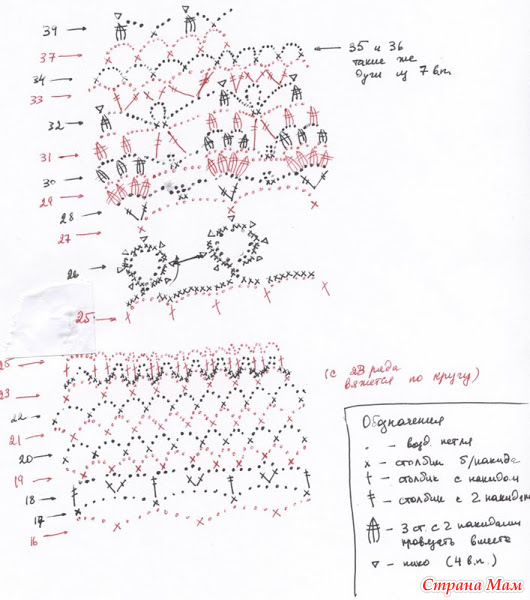 39
37
34
33
35 и 36
такие же
дуги из 7 в.п.
32
31
30
29
28
27
26
25
25
23
22
21
20
19
18
17
16
(с 23 ряда
вяжется по кругу)
Обозначения
· - возд. петля
x - столбик б/накида
† - столбик с накидом
‡ - столбик с 2 накидам
3 ст. с 2 накидами
провязать вместе
▽ - пико (4 в.п.)
Страна Мам